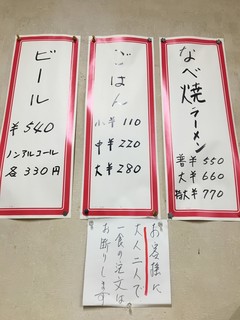 なべ焼ラーメン
普 ¥550
大 ¥660
特大 ¥770
ごはん
小 ¥110
中 ¥220
大 ¥280
ビール
¥540
ノンアルコール
各330円
お客様に
大人二人で
一食の注文は
お断りします